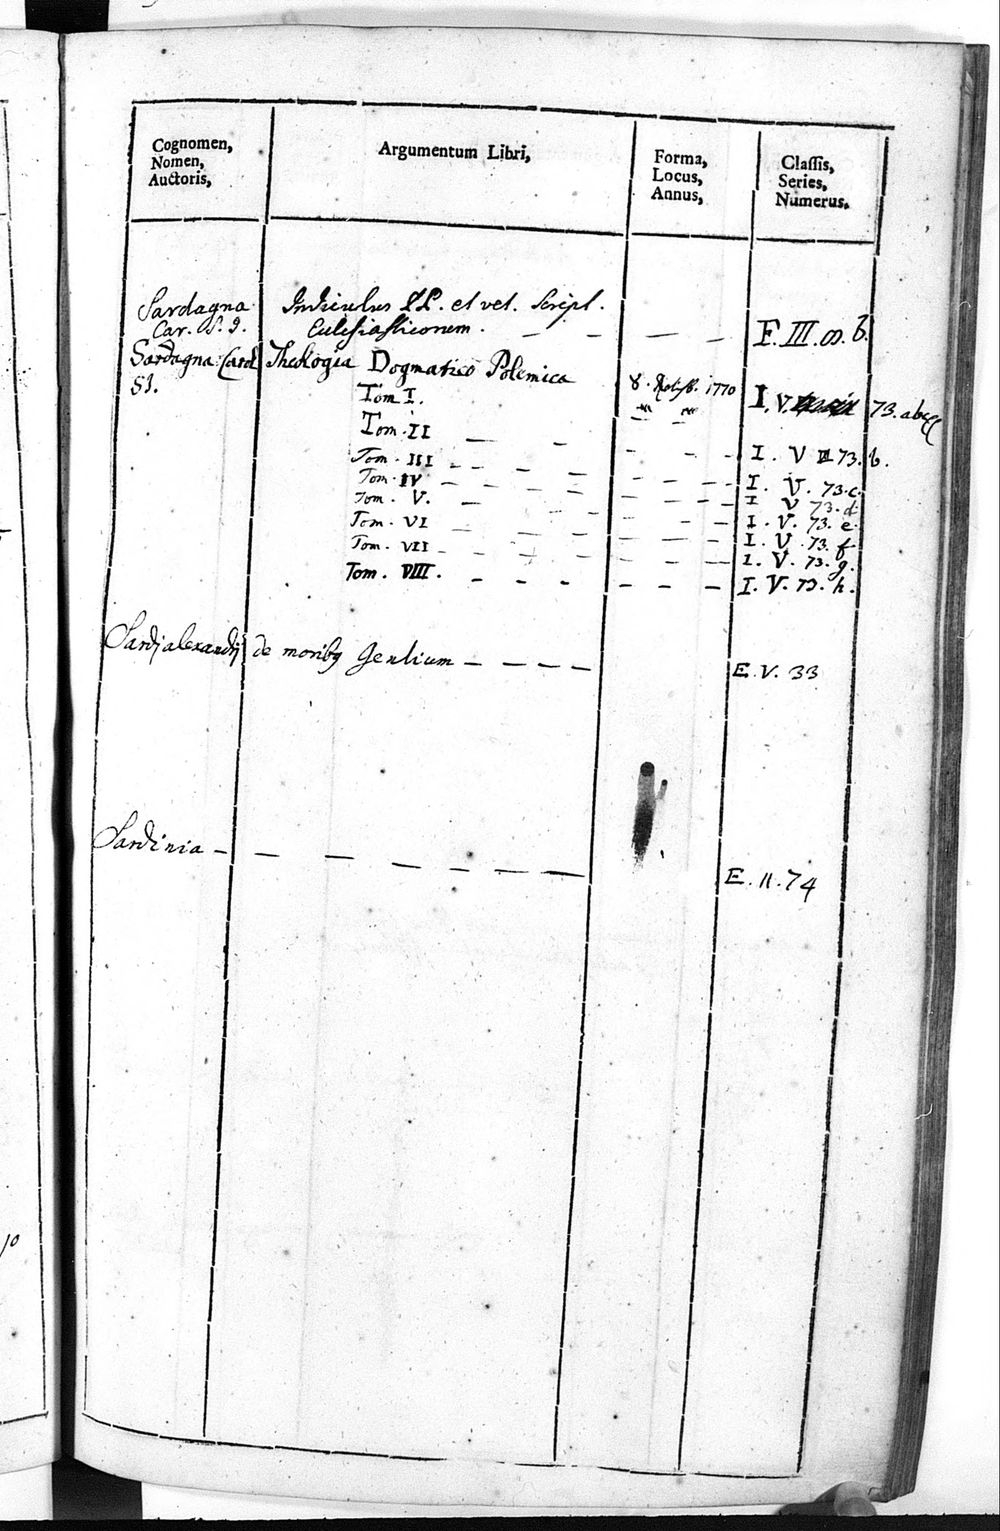 Cognomen,
Nomen,
Auctoris,
Argumentum Libri,
Forma,
Locus,
Annus,
Classis,
Series,
Numerus.
Sardagna Indiculus PP. et vet. Script.
Car. S. J. Eclesiasticorum. F. III. b.
Sardagna Carol Theologia Dogmatico Polemica 8. Ratisb. 1770
SJ. Tom I. I. V. 73. a
Tom. II
Tom. III I. V 73. b.
Tom. IV I. V. 73. c.
Tom. V. I V 73. d
Tom. VI I. V. 73. e.
Tom. VII I. V. 73. f
I. V. 73. g.
Tom. VIII. I. V. 73. h.
Sardj alexandrj de moribq Gentium E. V. 33
Sardinia E. II. 74
10